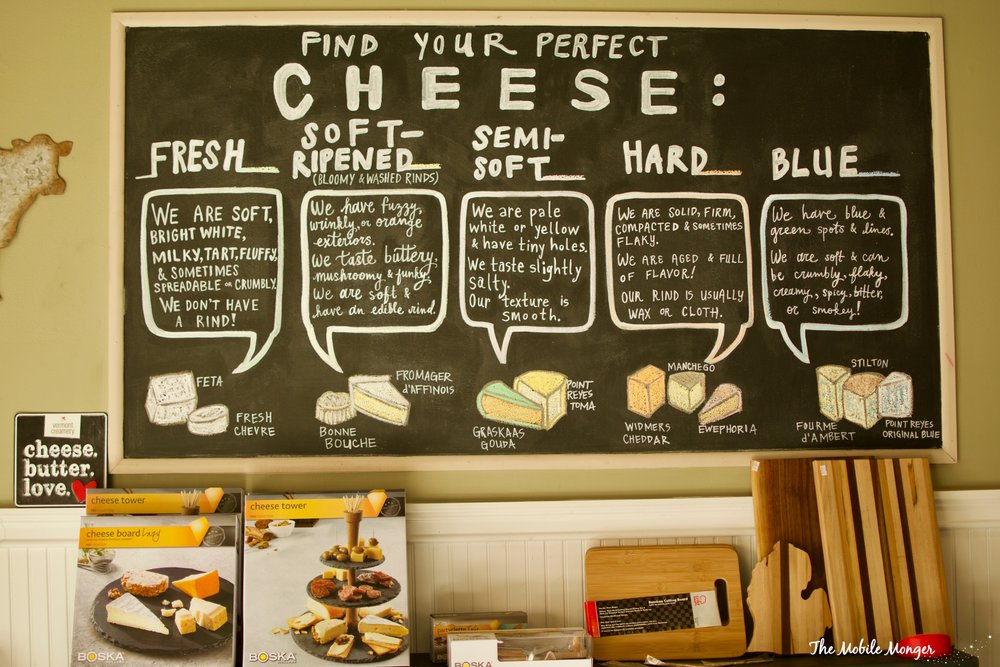 FIND YOUR PERFECT
CHEESE:
FRESH
WE ARE SOFT,
BRIGHT WHITE,
MILKY, TART, FLUFFY,
& SOMETIMES
SPREADABLE OR CRUMBLY.
WE DON'T HAVE
A RIND!
FETA
FRESH
CHEVRE
SOFT-
RIPENED
(BLOOMY & WASHED RINDS)
We have fuzzy,
wrinkly, or orange
exteriors.
We taste buttery,
mushroomy & funky.
We are soft &
have an edible rind.
BONNE
BOUCHE
FROMAGER
d'AFFINOIS
SEMI-
SOFT
We are pale
white or yellow
& have tiny holes.
We taste slightly
salty.
Our texture is
smooth.
GRASKAAS
GOUDA
POINT
REYES
TOMA
HARD
WE ARE SOLID, FIRM,
COMPACTED & SOMETIMES
FLAKY.
WE ARE AGED & FULL
OF FLAVOR!
OUR RIND IS USUALLY
WAX OR CLOTH.
MANCHEGO
WIDMERS
CHEDDAR
EWEPHORIA
BLUE
We have blue &
green spots & lines.
We are soft & can
be crumbly, flaky,
creamy, spicy, bitter,
or smokey!
STILTON
FOURME
d'AMBERT
POINT REYES
ORIGINAL BLUE
vermont
creamery
cheese.
butter.
love.
cheese tower
cheese board
BOSKA
cheese tower
BOSKA
BOSKA
The Mobile Monger